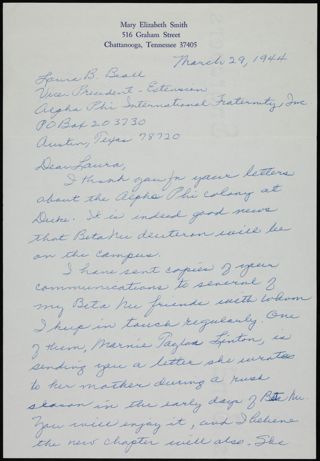 Mary Elizabeth Smith
516 Graham Street
Chattanooga, Tennessee 37405
March 29, 1944
Laura B. Beall
Vice President - Extension
Alpha Phi International Fraternity, Inc
PO Box 203730
Austin, Texas 78720
Dear Laura,
I thank you for your letters
about the Alpha Phi colony at
Duke. It is indeed good news
that Beta Nu deuteron will be
on the campus.
I have sent copies of your
communications to several of
my Beta Nu friends with whom
I keep in touch regularly. One
of them, Marnie Linton, is
sending you a letter she wrote
to her mother during a rush
season in the early days of Beta Nu.
You will enjoy it, and I believe
the new chapter will also. She